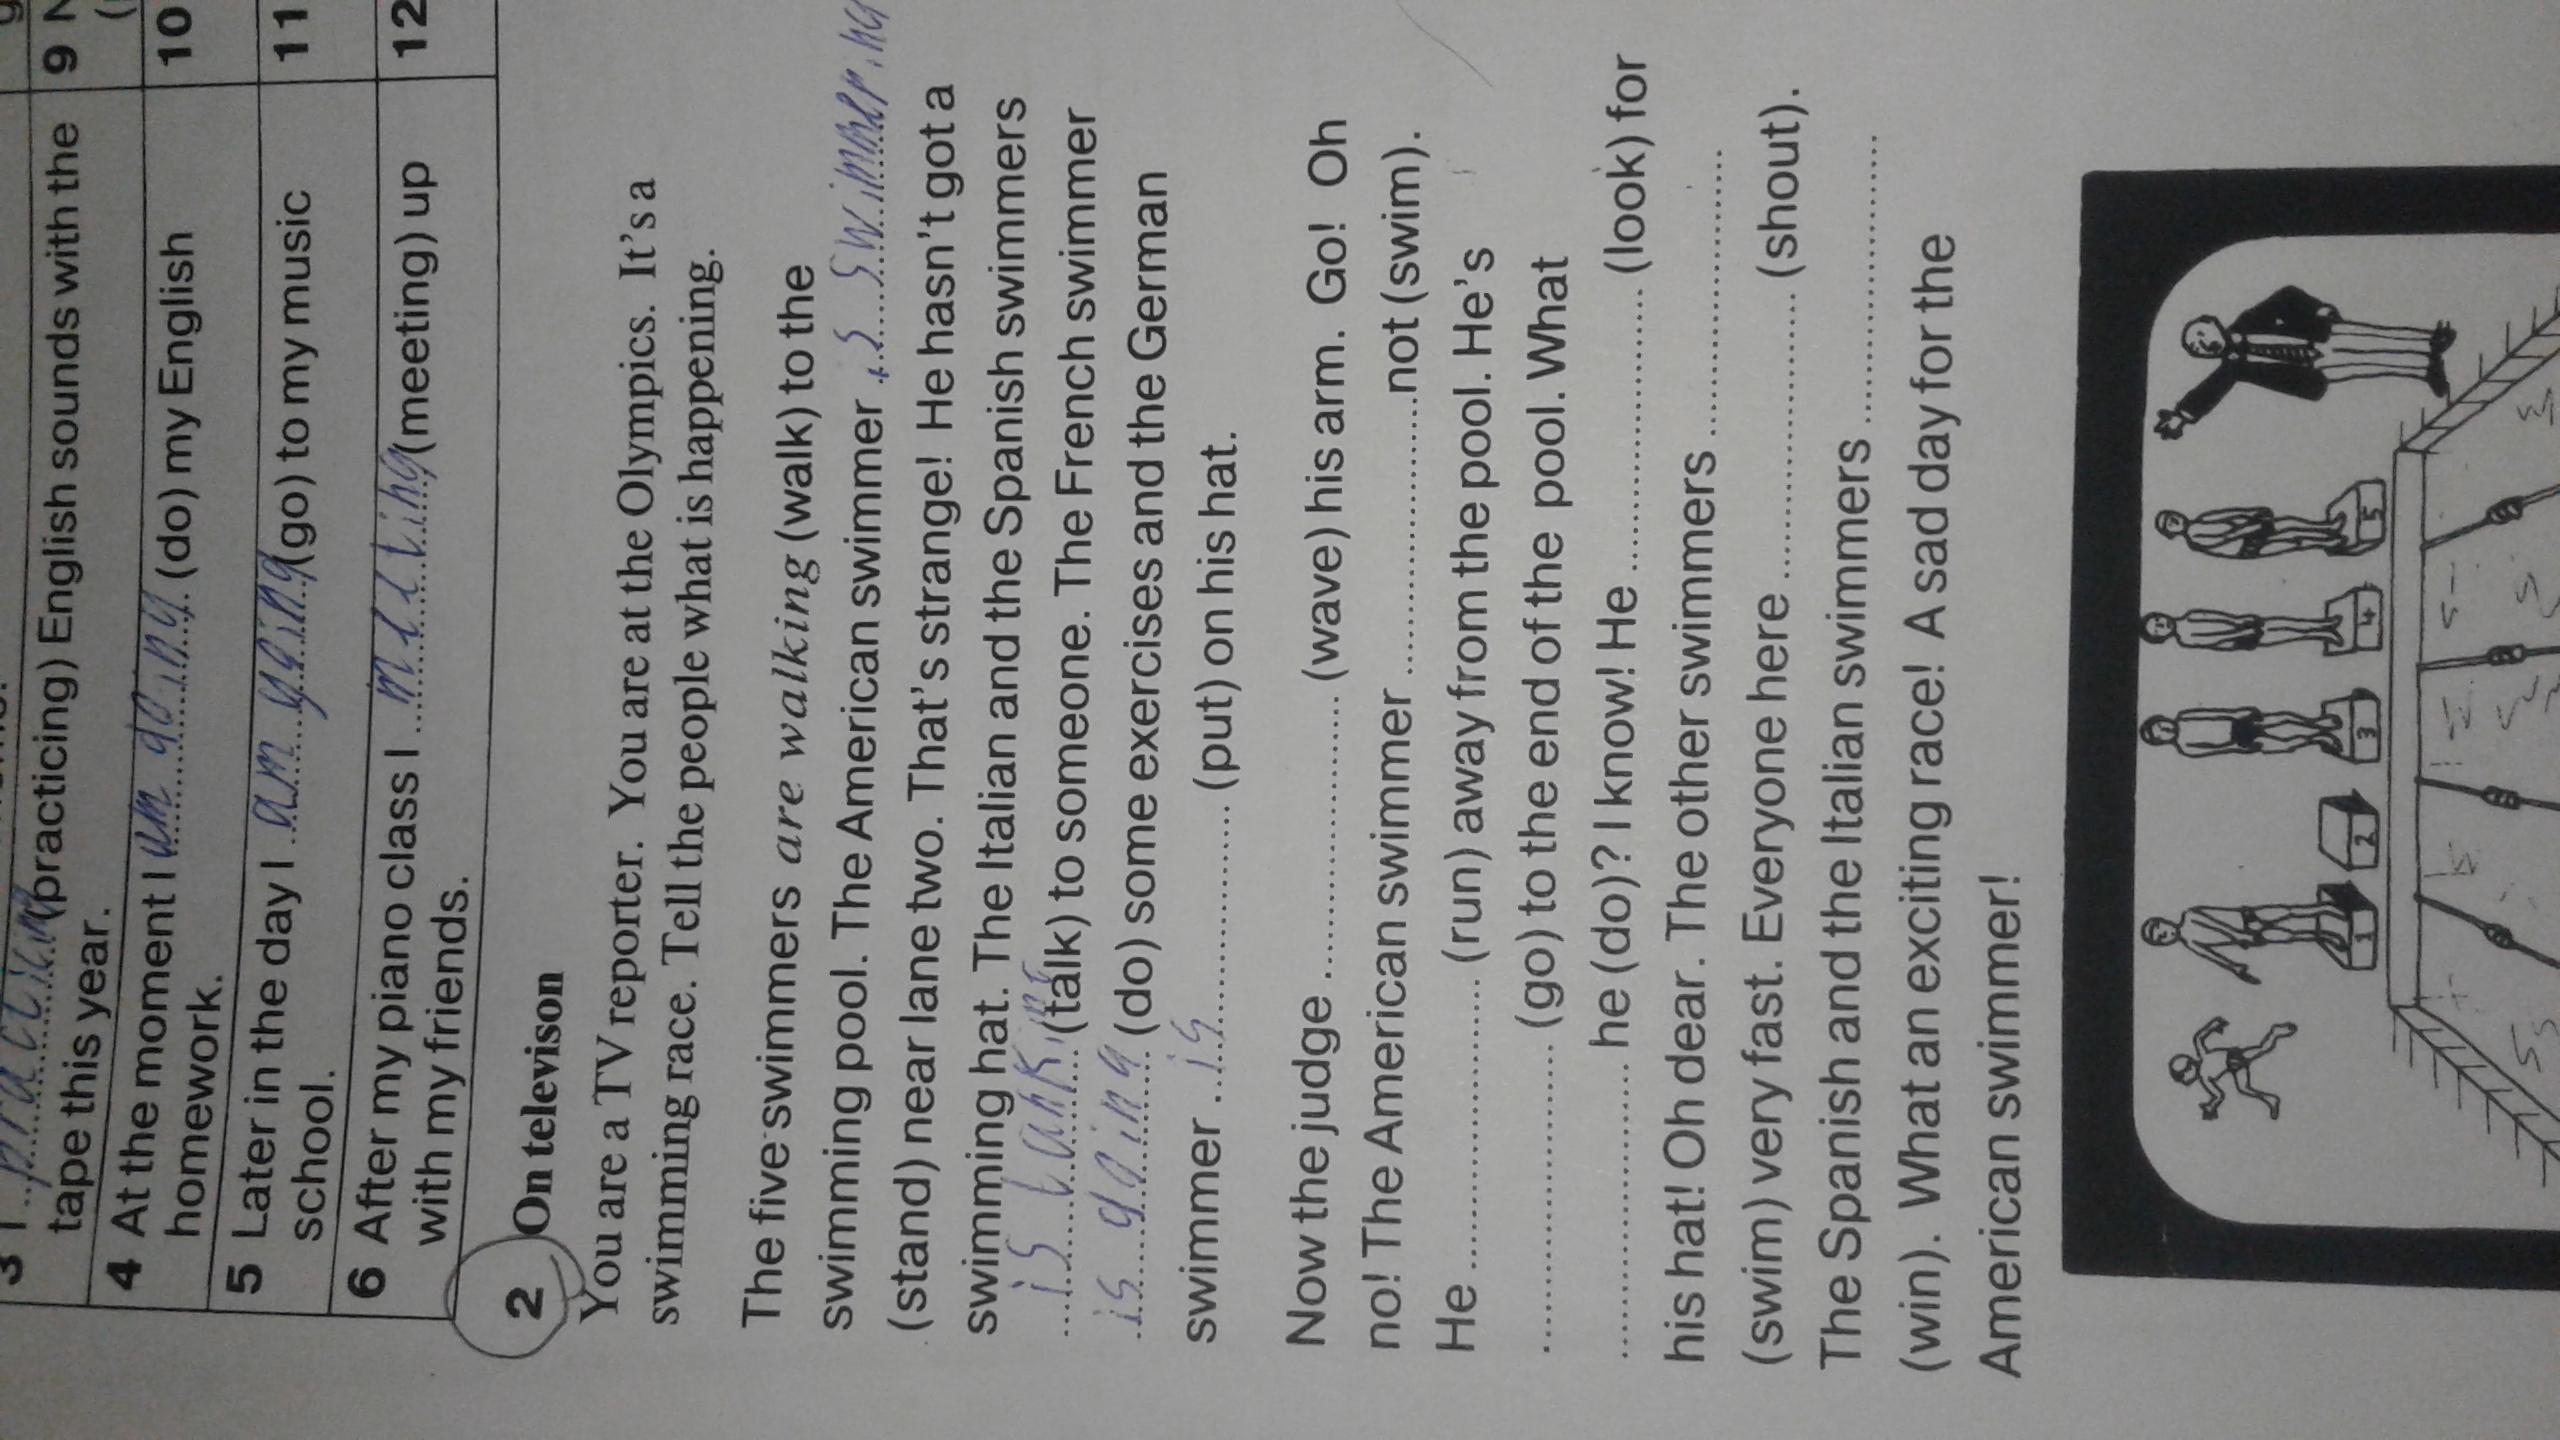 9
3 I practicing (practicing) English sounds with the
tape this year.
4 At the moment I am doing (do) my English
homework.
10
5 Later in the day I am going (go) to my music
school.
11
6 After my piano class I meeting (meeting) up
with my friends.
12
2 On televison
You are a TV reporter. You are at the Olympics. It's a
swimming race. Tell the people what is happening.
The five swimmers are walking (walk) to the
swimming pool. The American swimmer is
(stand) near lane two. That's strange! He hasn't got a
swimming hat. The Italian and the Spanish swimmers
is (talk) to someone. The French swimmer
is (do) some exercises and the German
swimmer is (put) on his hat.
Now the judge (wave) his arm. Go! Oh
no! The American swimmer not (swim).
He (run) away from the pool. He's
(go) to the end of the pool. What
he (do)? I know! He (look) for
his hat! Oh dear. The other swimmers
(swim) very fast. Everyone here (shout).
The Spanish and the Italian swimmers
(win). What an exciting race! A sad day for the
American swimmer!
1 2 3 4 5